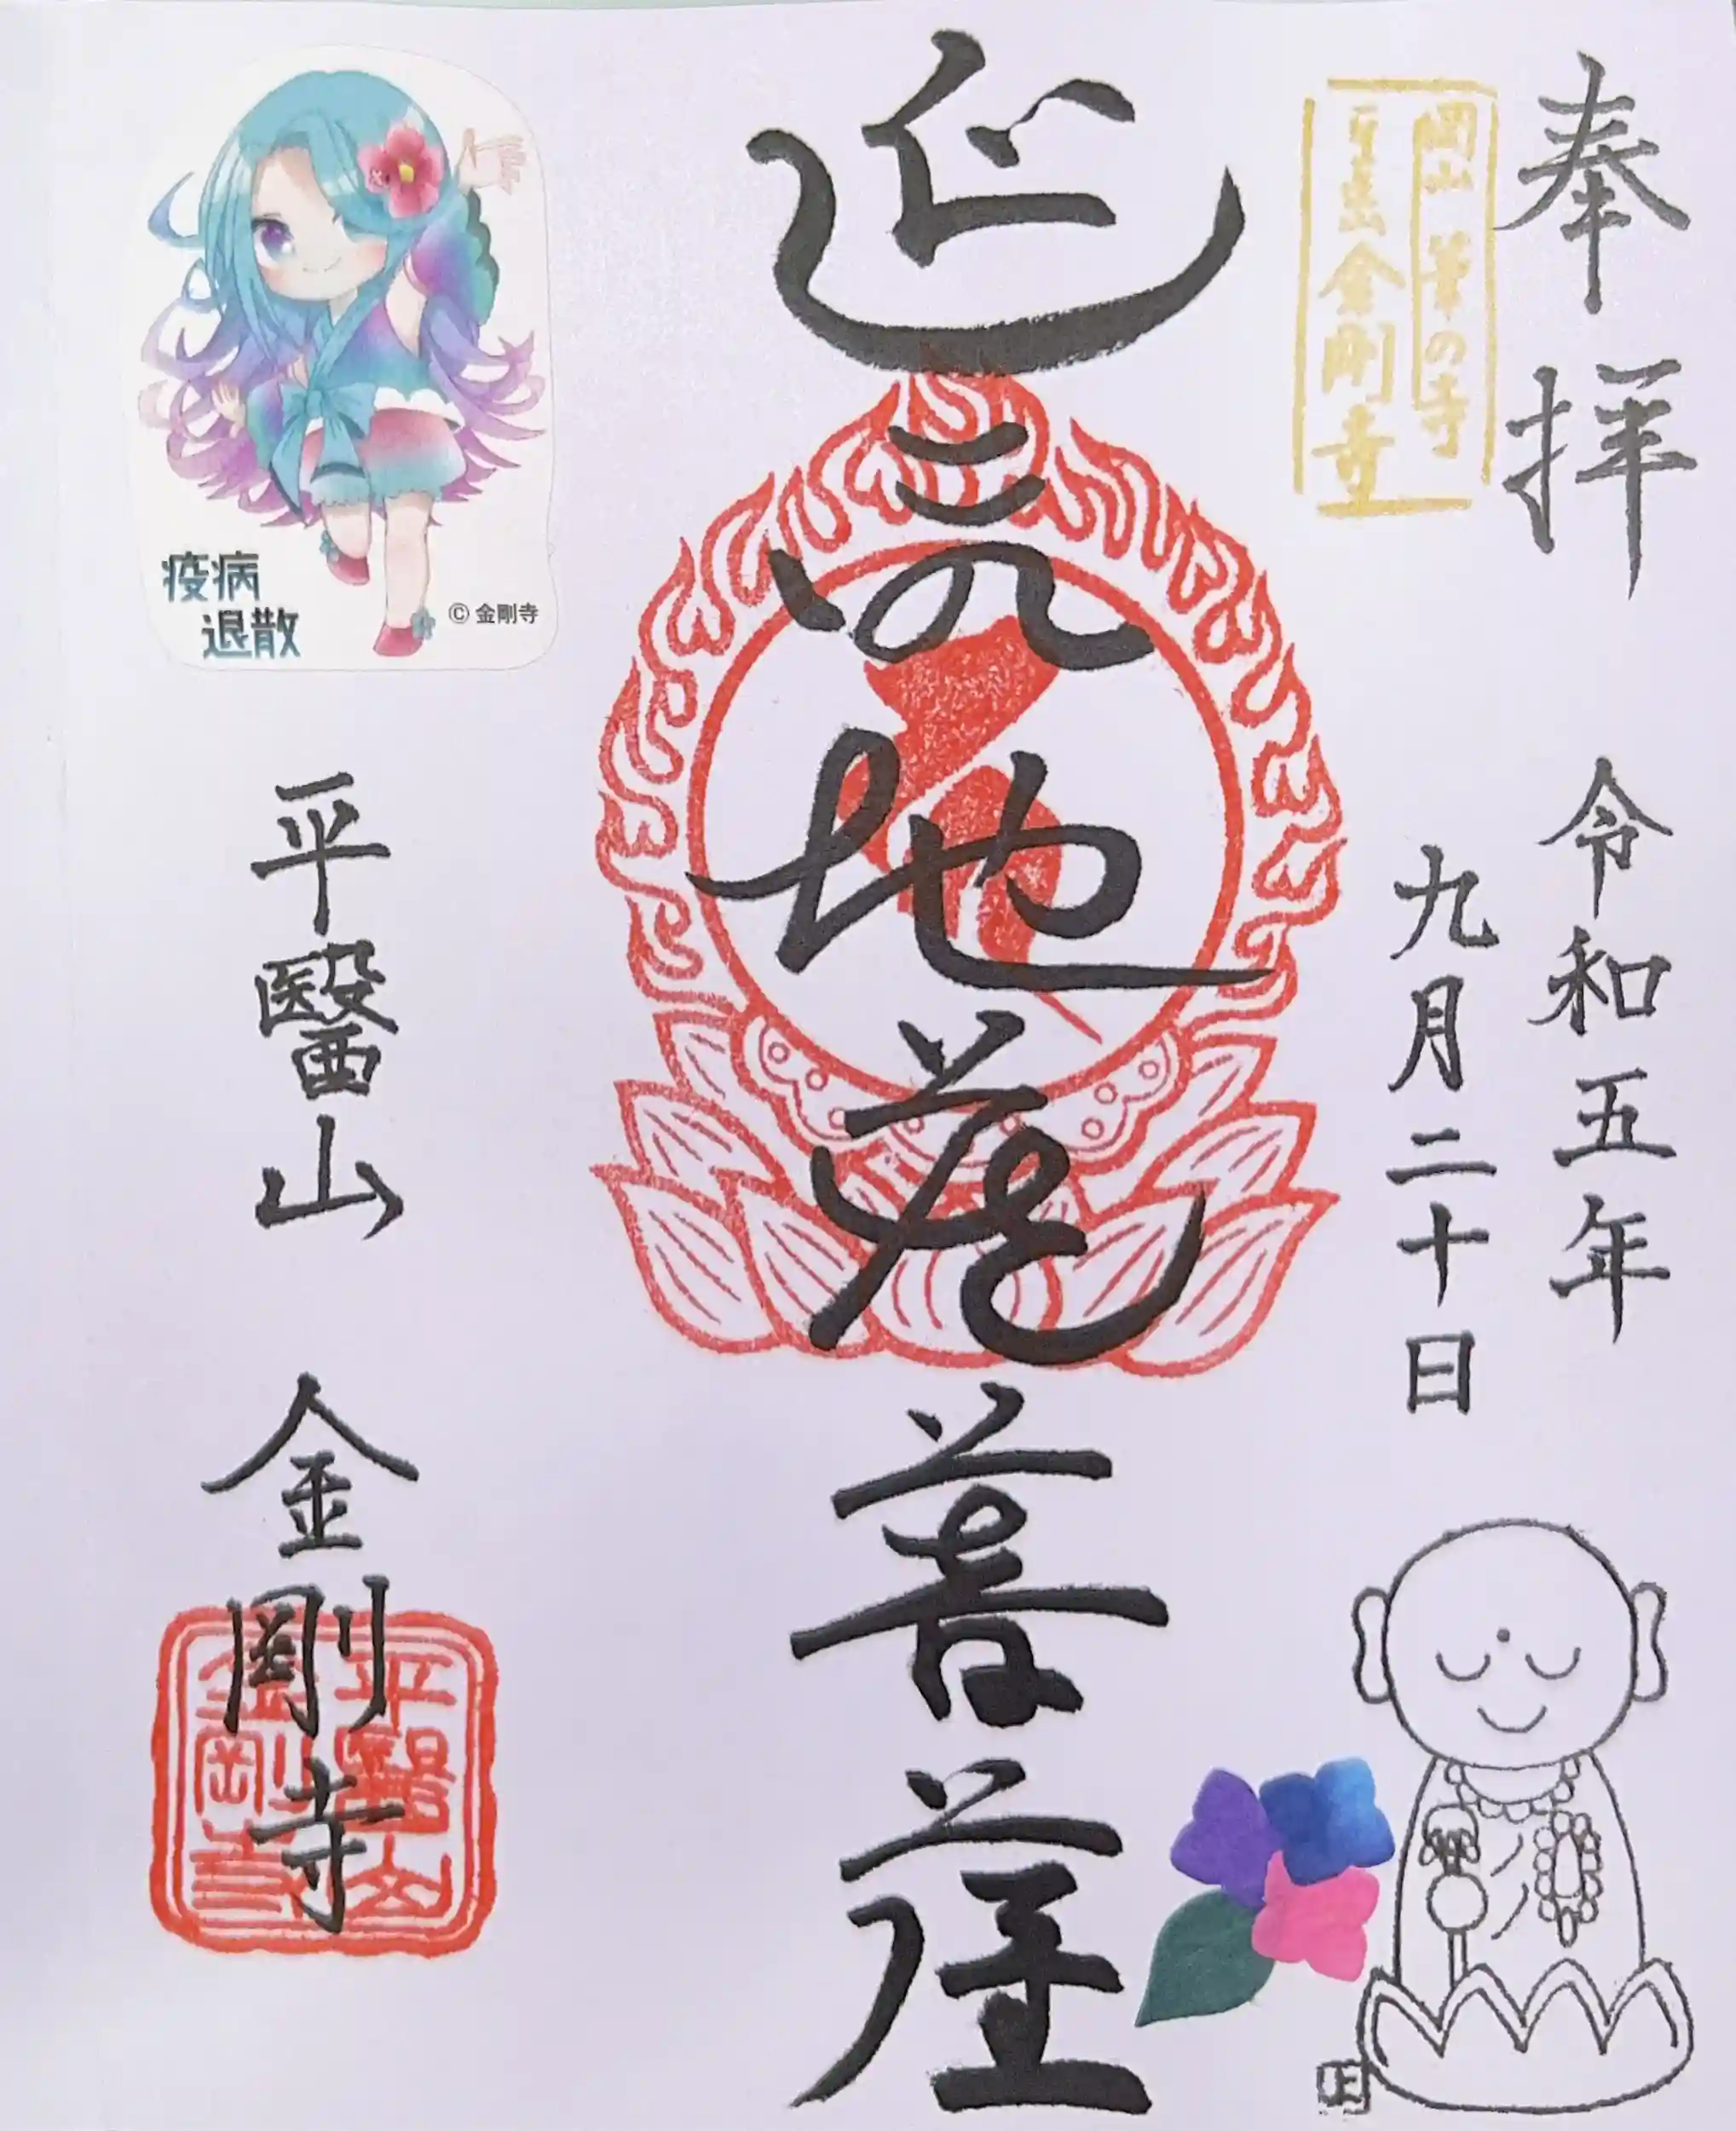 奉拝
岡山 の寺
金剛寺
令和五年
九月二十日
延命地蔵菩薩
疫病
退散
© 金剛寺
平醫山 金剛寺
平醫山
金剛寺